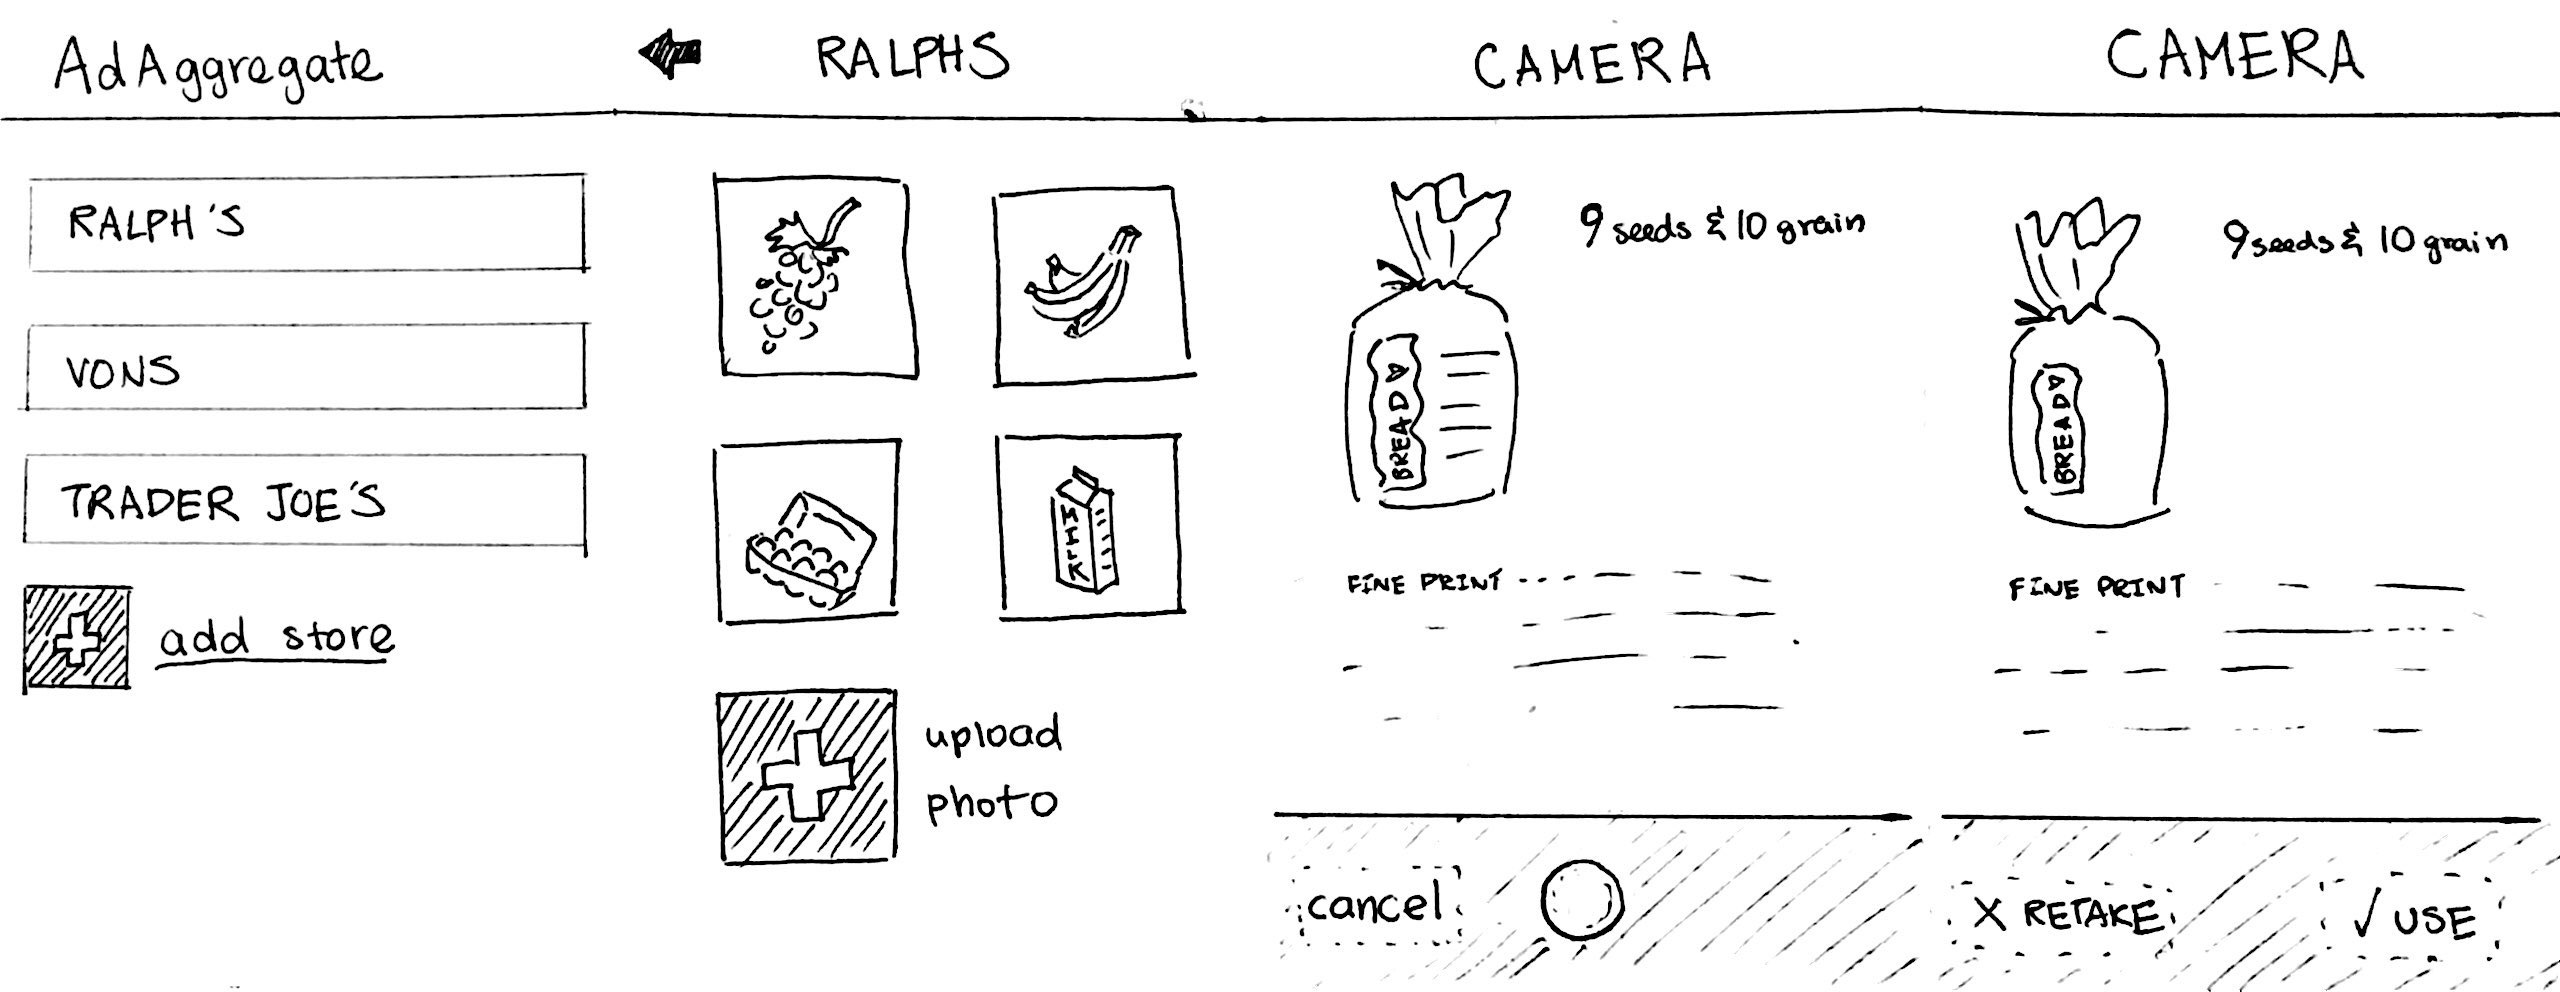 AdAggregate
RALPH'S
VONS
TRADER JOE'S
add store
RALPHS
MILK
upload
photo
CAMERA
9 seeds & 10 grain
BREAD
FINE PRINT
cancel
CAMERA
9 seeds & 10 grain
BREAD
FINE PRINT
X RETAKE
√ USE